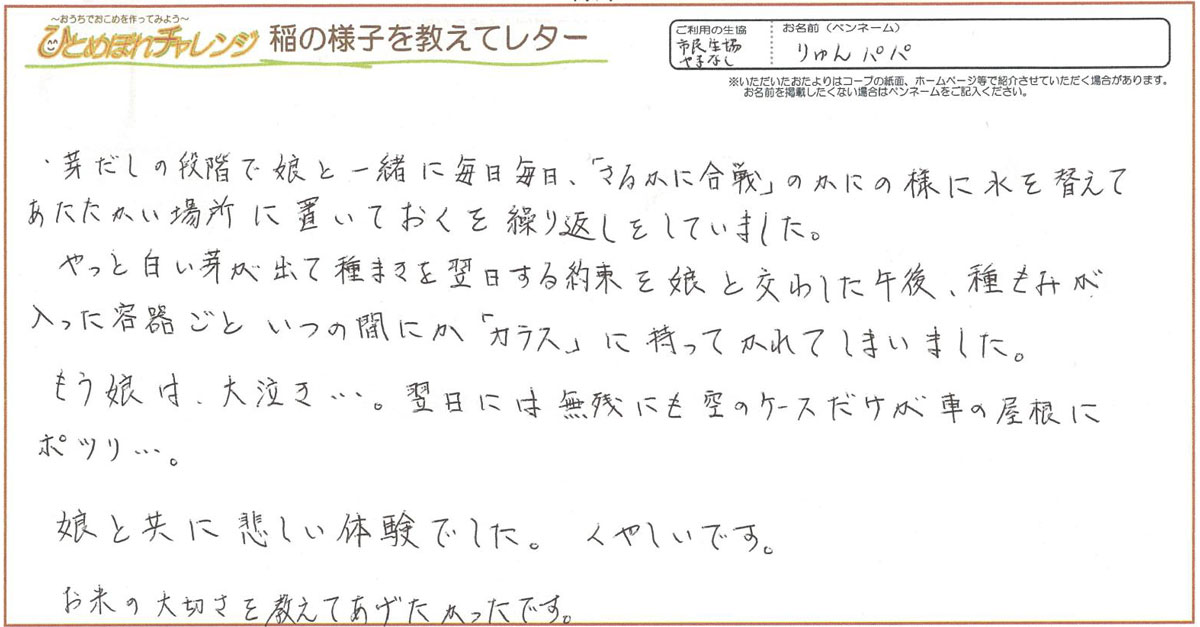 ～おうちでおこめを作ってみよう～
ひとめぼれチャレンジ 稲の様子を教えてレター
ご利用の生協
市民生協
やまなし
お名前（ペンネーム）
りゅんパパ
※いただいたおたよりはコープの紙面、ホームページ等で紹介させていただく場合があります。
お名前を掲載したくない場合はペンネームをご記入ください。
・芽だしの段階で娘と一緒に毎日毎日、「さるかに合戦」のかにの様に水を替えて
あたたかい場所に置いておくを繰り返しをしていました。
やっと白い芽が出て種まきを翌日する約束を娘と交わした午後、種もみが
入った容器ごといつの間にか「カラス」に持ってかれてしまいました。
もう娘は、大泣き…。翌日には無残にも空のケースだけが車の屋根に
ポツリ…。
娘と共に悲しい体験でした。くやしいです。
お米の大切さを教えてあげたかったです。